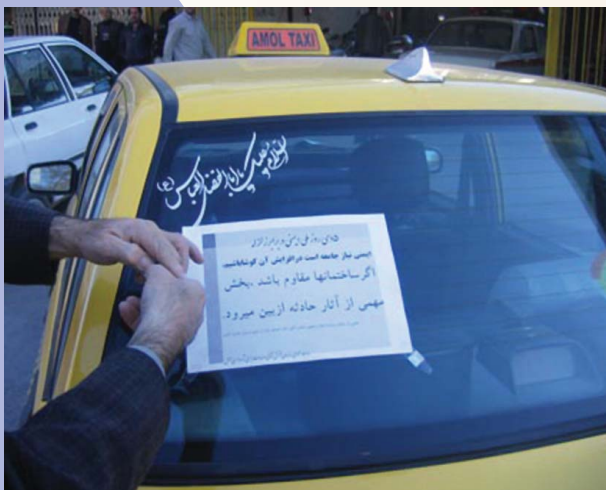 AMOL TAXI
السلام علیک یا اباالفضل العباس (ع)
۵ دی روز ملی ایمنی در برابر زلزله
ایمنی نیاز جامعه است درافزایش آن کوشاباشیم.
اگرساختمانها مقاوم باشد ،بخش
مهمی از آثار حادثه ازبین میرود.